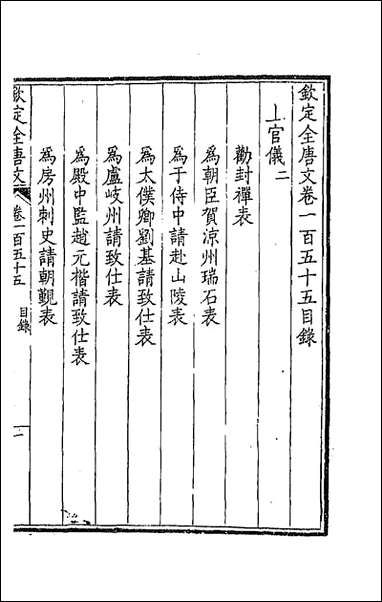 欽定全唐文卷一百五十五目錄
上官儀二
勸封禪表
為朝臣賀涼州瑞石表
為于侍中請赴山陵表
為太僕卿劉基請致仕表
為盧岐州請致仕表
為殿中監趙元楷請致仕表
為房州刺史請朝覲表
欽定全唐文 卷一百五十五 目錄 一